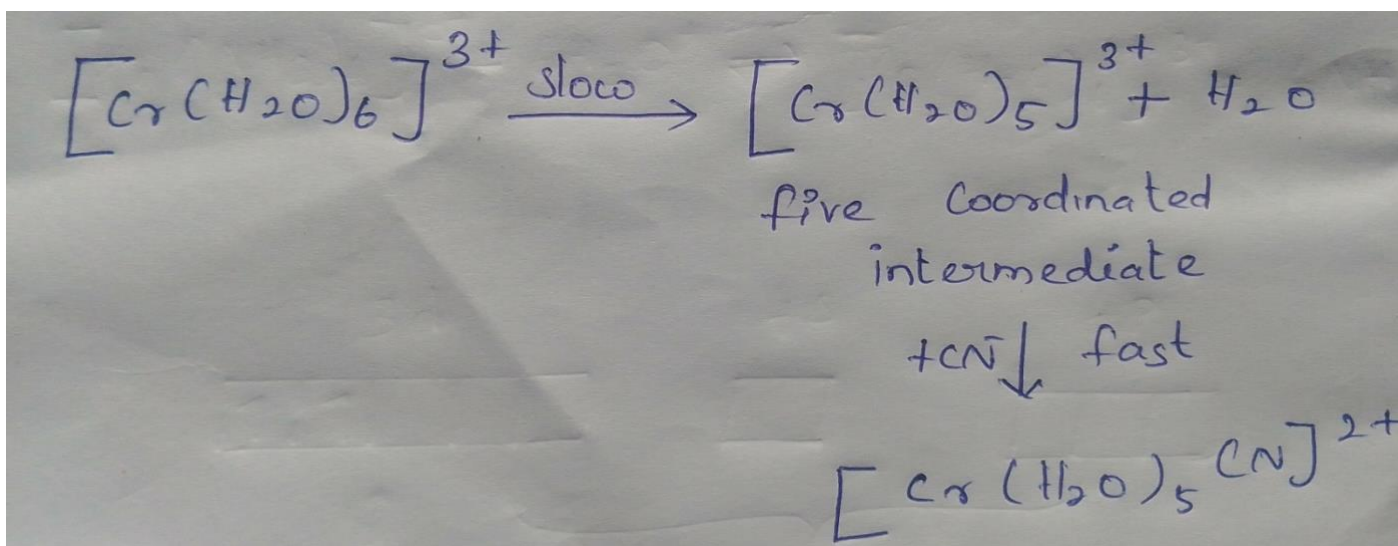 [Cr(H2O)6]3+ slow → [Cr(H2O)5]3+ + H2O
five coordinated
intermediate
+CN- ↓ fast
[Cr(H2O)5 CN]2+